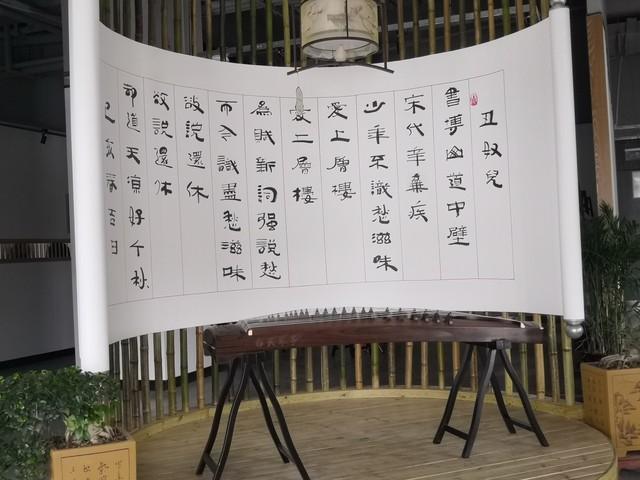 丑奴兒
書博山道中壁
宋代辛棄疾
少年不識愁滋味
愛上層樓
愛二層樓
為賦新詞强說愁
而今識盡愁滋味
欲說還休
欲說還休
却道天涼好个秋